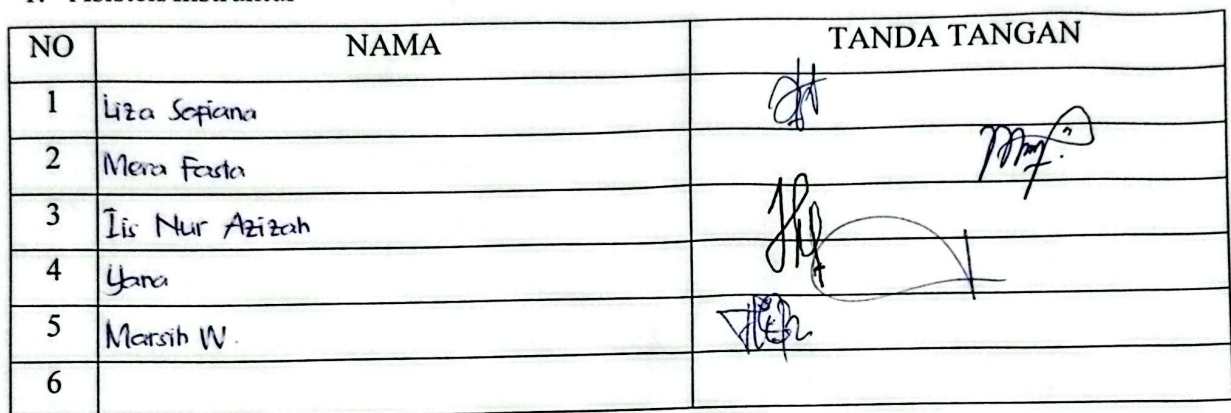 NO NAMA TANDA TANGAN
1 Liza Sofiana
2 Mera Fasta
3 Iis Nur Azizah
4 Yana
5 Marsih W.
6